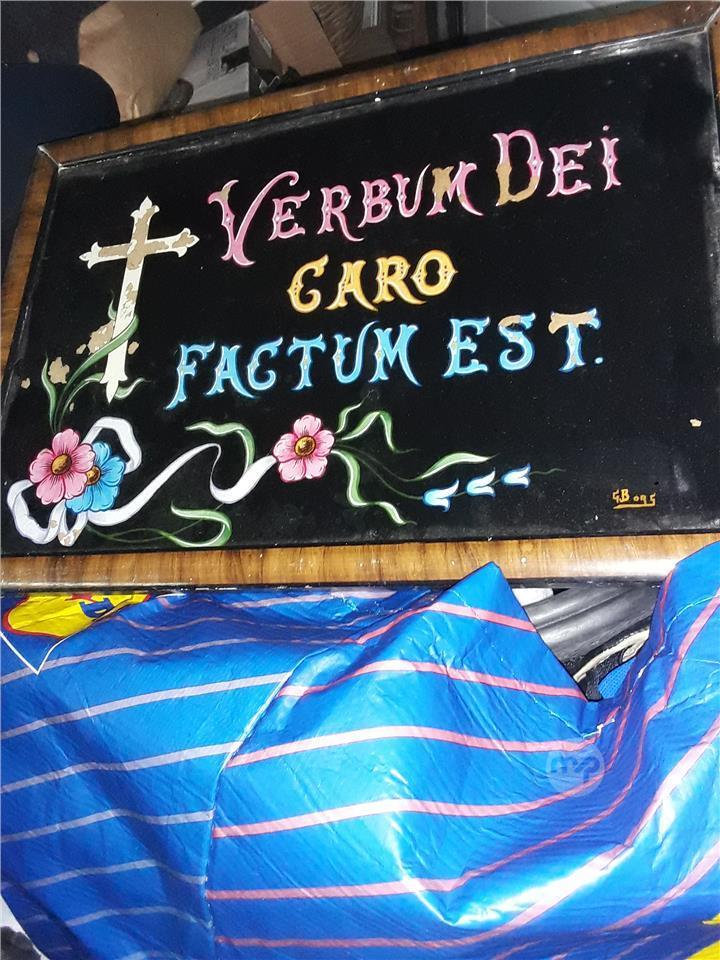 VERBUM DEI
CARO
FACTUM EST.
G.Borg
mp